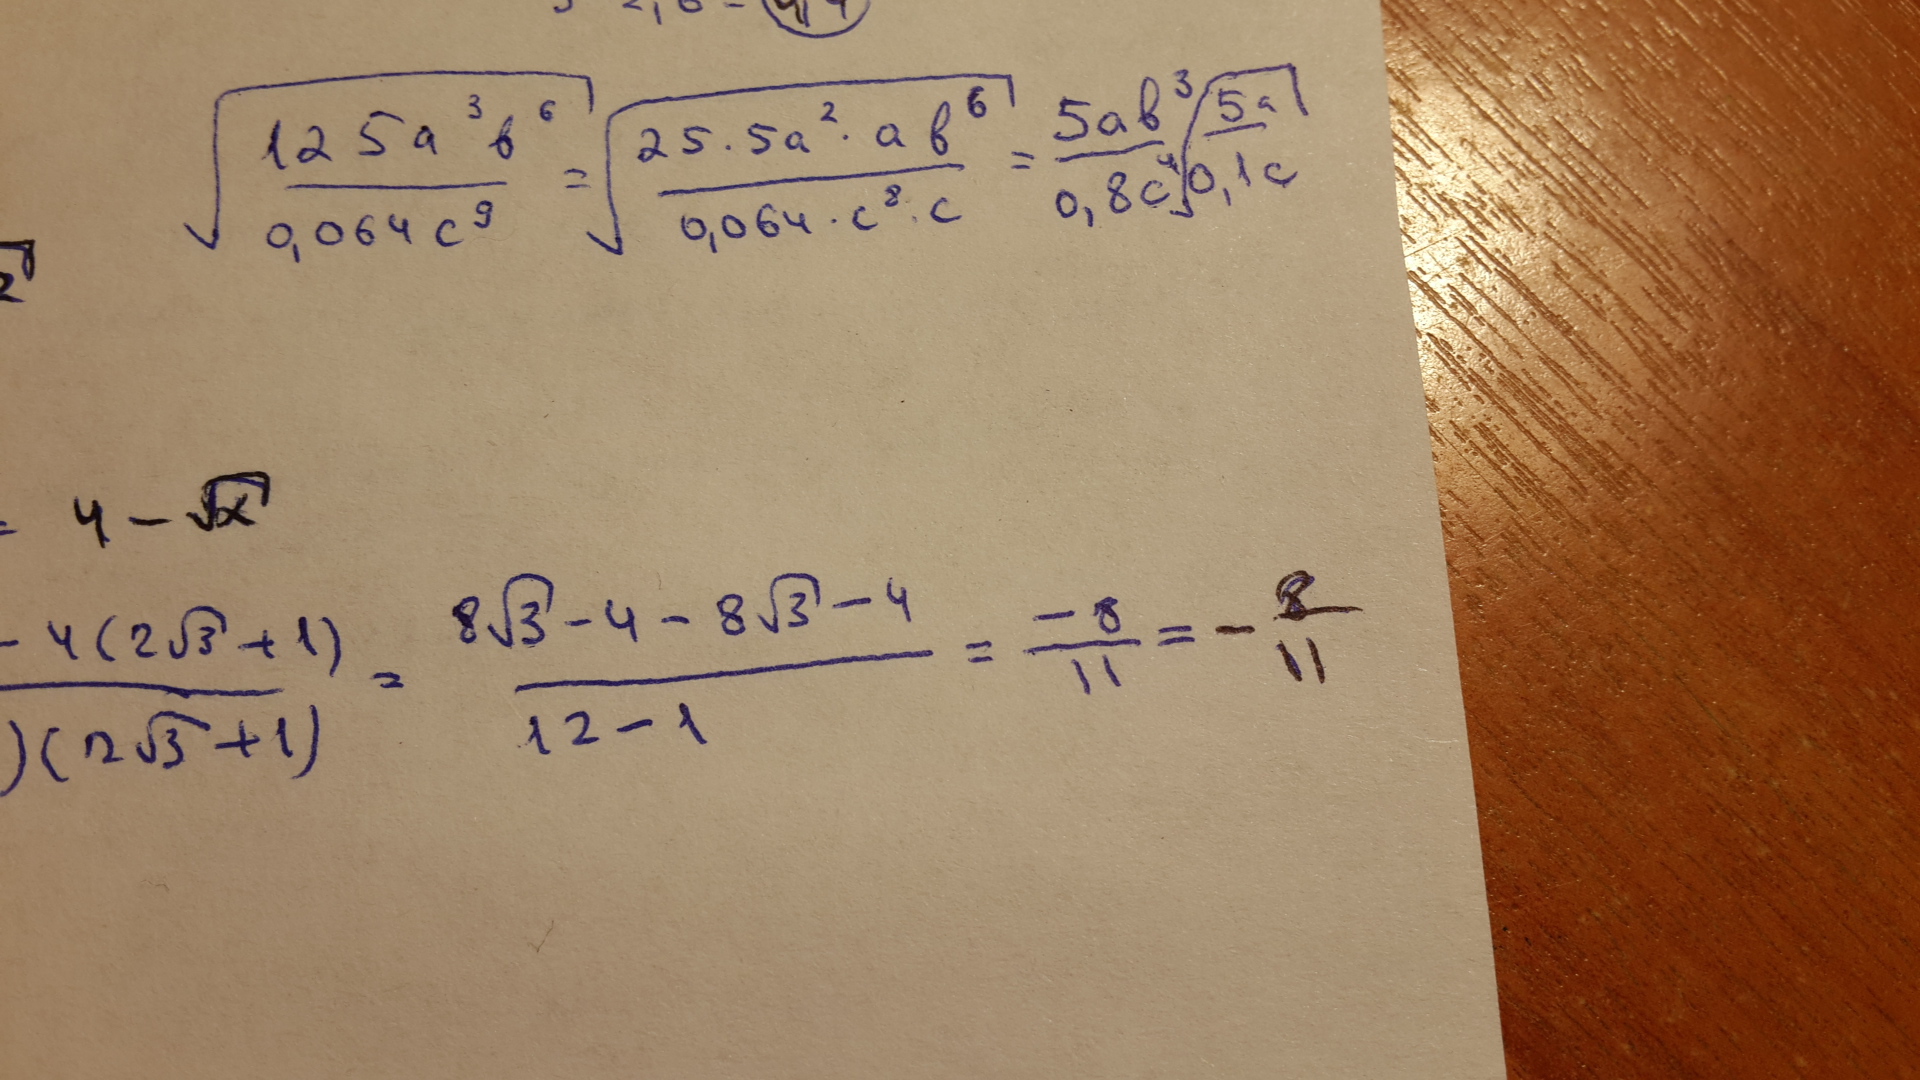 √(125a³b⁶ / 0,064c⁹) = √(25·5a²·ab⁶ / 0,064·c⁸·c) = 5ab³ / 0,8c⁴ √(5a / 0,1c)
= 4 - √2
- 4(2√3 + 1) / )(2√3 + 1) = 8√3 - 4 - 8√3 - 4 / 12 - 1 = -8 / 11 = - 8 / 11